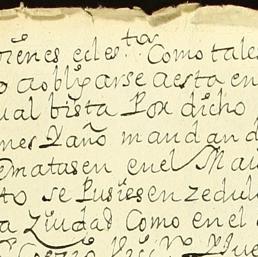 vienes eclesta.. Como tales
o a oblixarse a esta en
ual bista Por dicho
mes y año mandand
ematasen en el Mai
to se Pusiesen zedul
a Ziudad Como en el